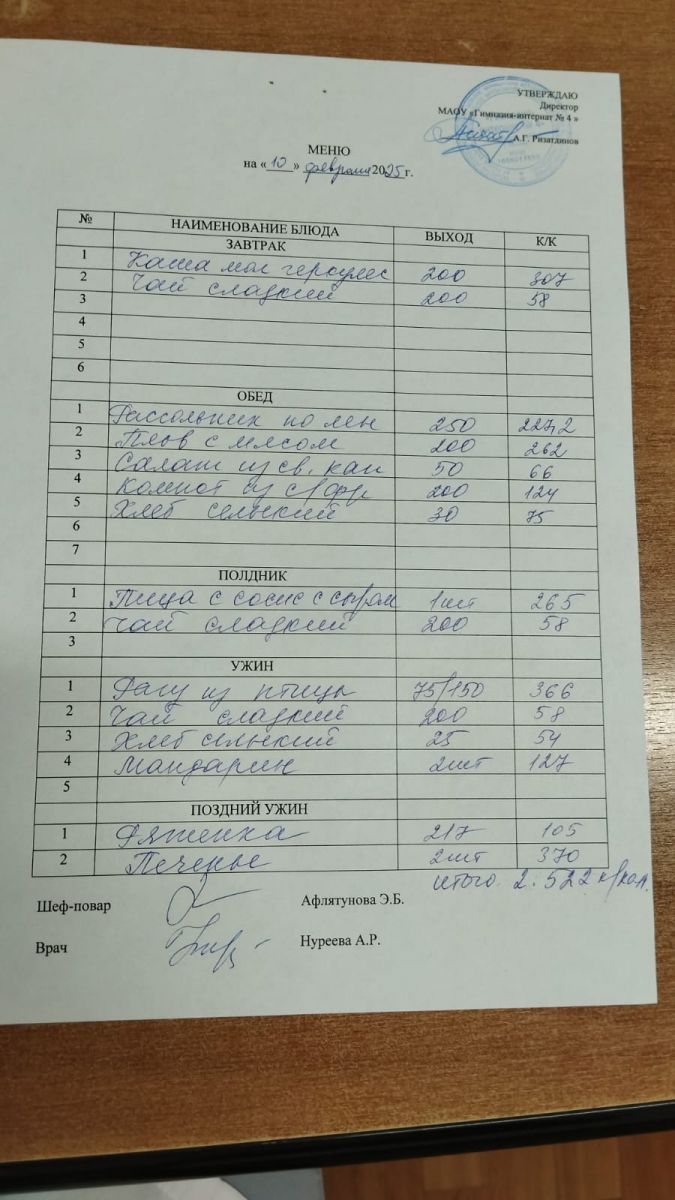 УТВЕРЖДАЮ
Директор
МАОУ «Гимназия-интернат № 4 »
А.Г. Ризатдинов
МЕНЮ
на « 10 » февраля 2025 г.
№ НАИМЕНОВАНИЕ БЛЮДА ВЫХОД К/К
ЗАВТРАК
1 Каша мол геркулес 200 307
2 Чай сладкий 200 58
3
4
5
6
ОБЕД
1 Рассольник по лен 250 227,2
2 Плов с мясом 200 262
3 Салат из св. кап 50 66
4 Компот из с/фр 200 124
5 Хлеб сельский 30 75
6
7
ПОЛДНИК
1 Пица с сосис с сыром 1шт 265
2 Чай сладкий 200 58
3
УЖИН
1 Рагу из птицы 75/150 366
2 Чай сладкий 200 58
3 Хлеб сельский 25 54
4 Мандарин 2шт 127
5
ПОЗДНИЙ УЖИН
1 Ряженка 217 105
2 Печенье 2шт 370
итого 2.522 к/кал.
Шеф-повар Афлятунова Э.Б.
Врач Нуреева А.Р.